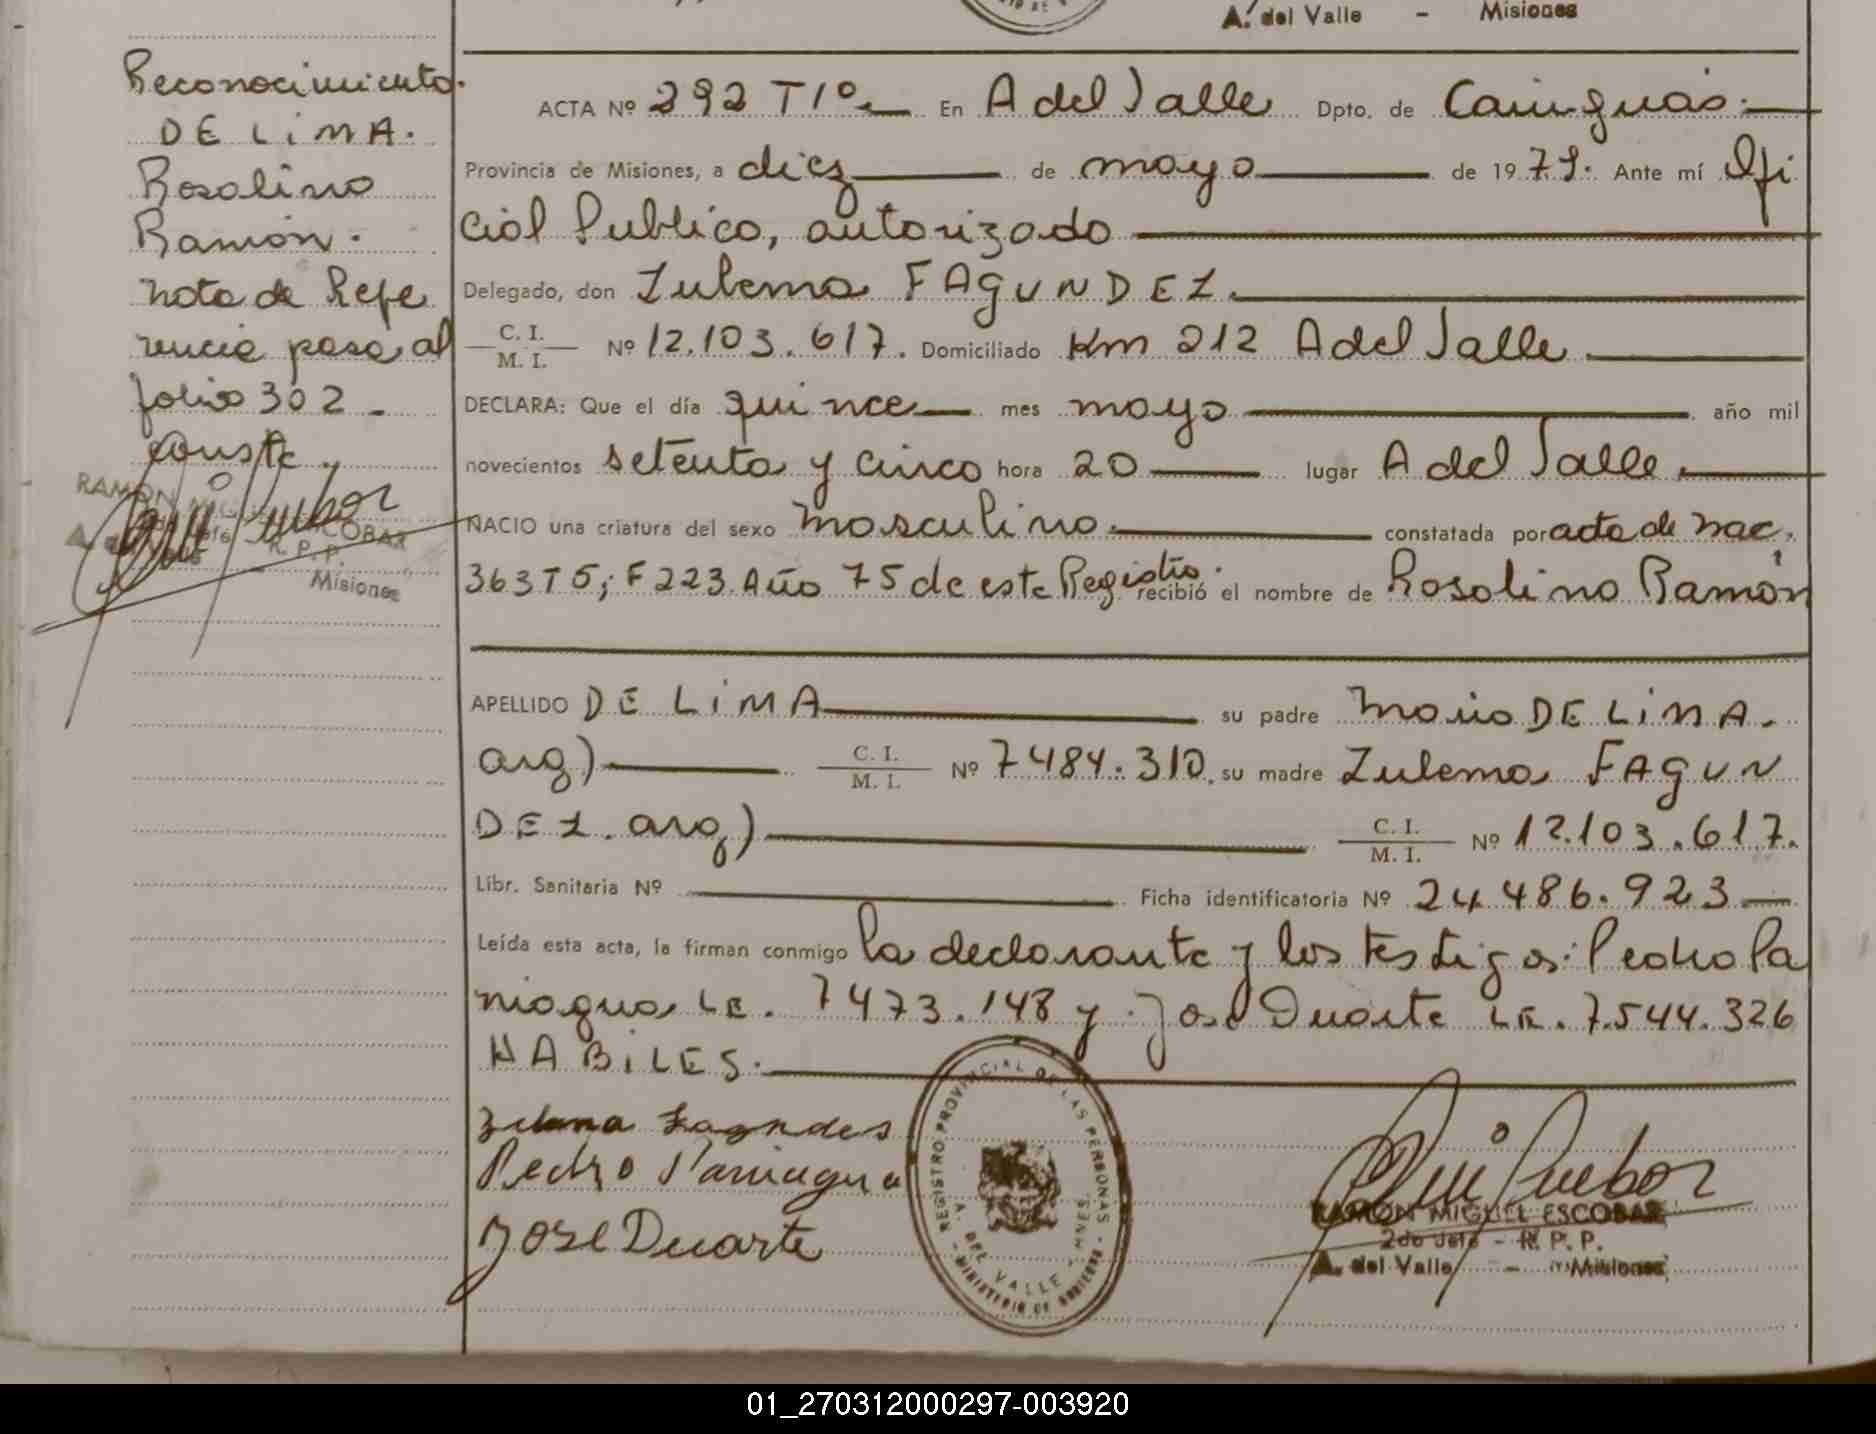 A. del Valle - Misiones
Reconocimiento.
DE LiMA.
Rosolino
Ramón.
nota de Refe
rencia pasa al
folio 302 -
Conste.
RAMON MIGUEL ESCOBAR
2do Jefe - R. P. P.
A. del Valle - Misiones
ACTA Nº 292 T1º En A del Valle Dpto. de Cainguás.
Provincia de Misiones, a diez de mayo de 1979. Ante mí Ofi
cial Publico, autorizado
Delegado, don Zulema FAGUNDEZ.
C. I. / M. I. Nº 12.103.617. Domiciliado Km 212 A del Valle
DECLARA: Que el día quince mes mayo año mil
novecientos setenta y cinco hora 20 lugar A del Valle
NACIO una criatura del sexo masculino. constatada por acta de nac.
363 T5; F 223 Año 75 de este Registro. recibió el nombre de Rosolino Ramón
APELLIDO DE LiMA su padre Mario DE LiMA.
arg) C. I. / M. I. Nº 7484.310. su madre Zulema FAGUN
DEZ. arg) C. I. / M. I. Nº 12.103.617.
Libr. Sanitaria Nº Ficha identificatoria Nº 24.486.923
Leída esta acta, la firman conmigo la declarante y los testigos: Pedro Pa
niagua LE. 7473.148 y José Duarte LE. 7.544.326
HABiLES.
Pedro Paniagua
José Duarte
REGISTRO PROVINCIAL DE LAS PERSONAS
A. DEL VALLE - MNES.
MINISTERIO DE GOBIERNO
RAMON MIGUEL ESCOBAR
2do Jefe - R. P. P.
A. del Valle - Misiones
01_270312000297-003920